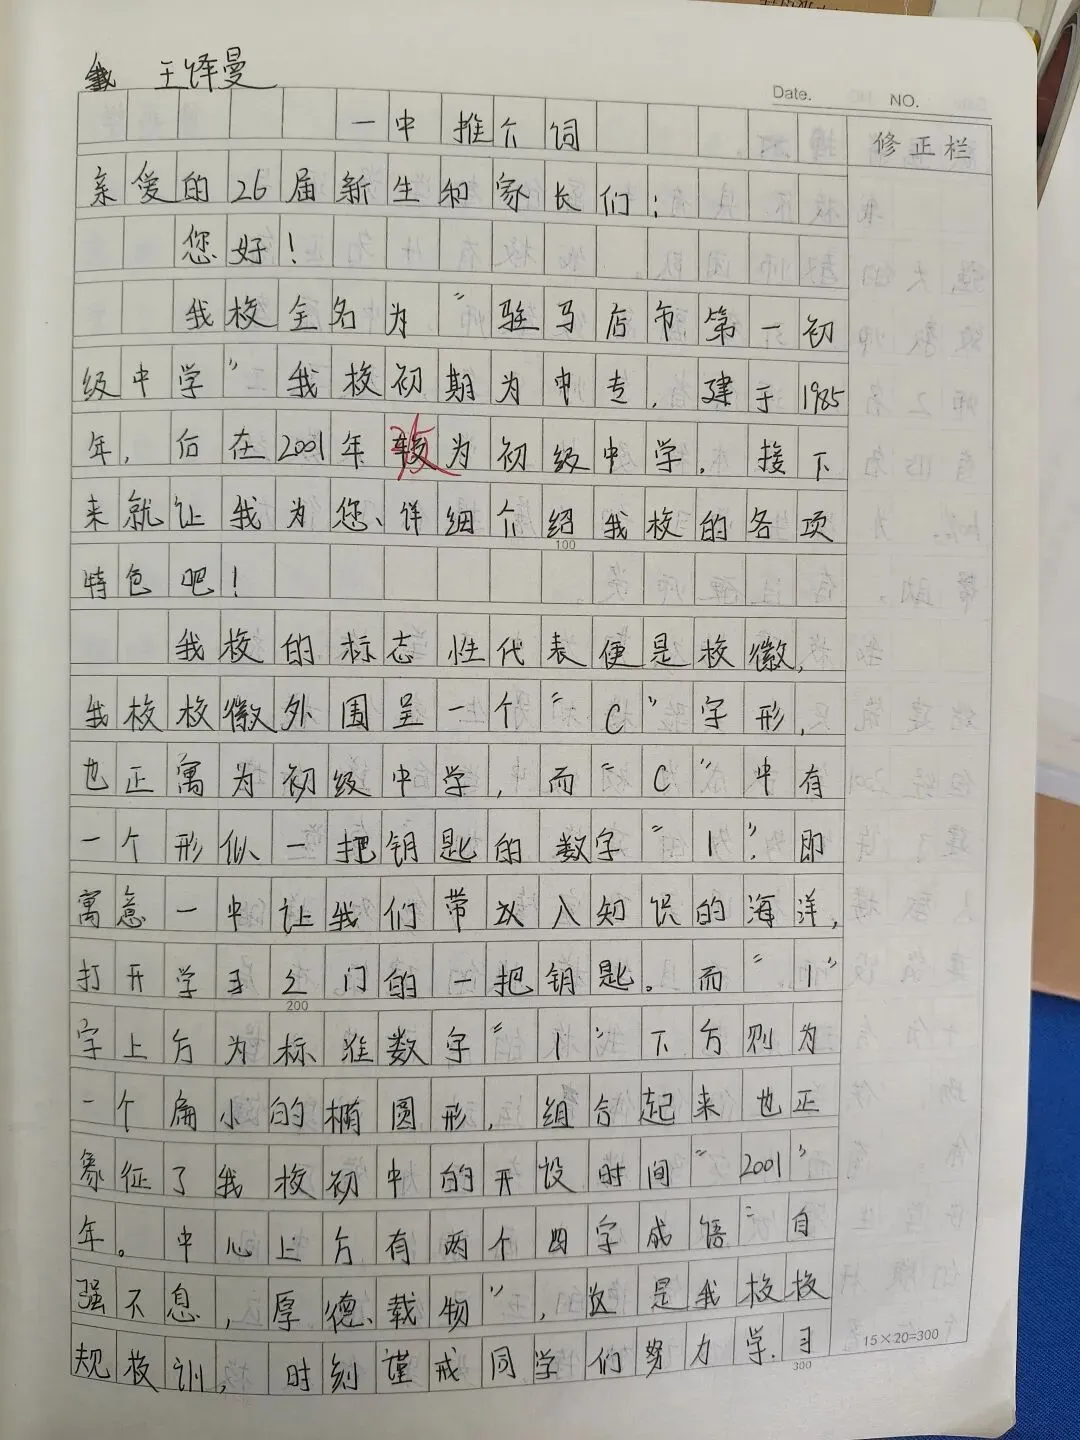 王铎曼
Date. NO.
一中推介词
修正栏
亲爱的26届新生和家长们：
您好！
我校全名为“驻马店市第一初
级中学”我校初期为中专，建于1985
年，后在2001年改为初级中学。接下
来就让我为您、详细介绍我校的各项
100
特色吧！
我校的标志性代表便是校徽，
我校校徽外围呈一个“C”字形，
也正寓为初级中学，而“C”中有
一个形似一把钥匙的数字“1”，即
寓意一中让我们带放入知识的海洋，
打开学习之门的一把钥匙。而“1”
200
字上方为标准数字“1”下方则为
一个扁小的椭圆形，组合起来也正
象征了我校初中的开设时间“2001”
年。中心上方有两个四字成语“自
强不息，厚德、载物”，这是我校校
规校训，时刻谨戒同学们努力学习
300
15×20=300